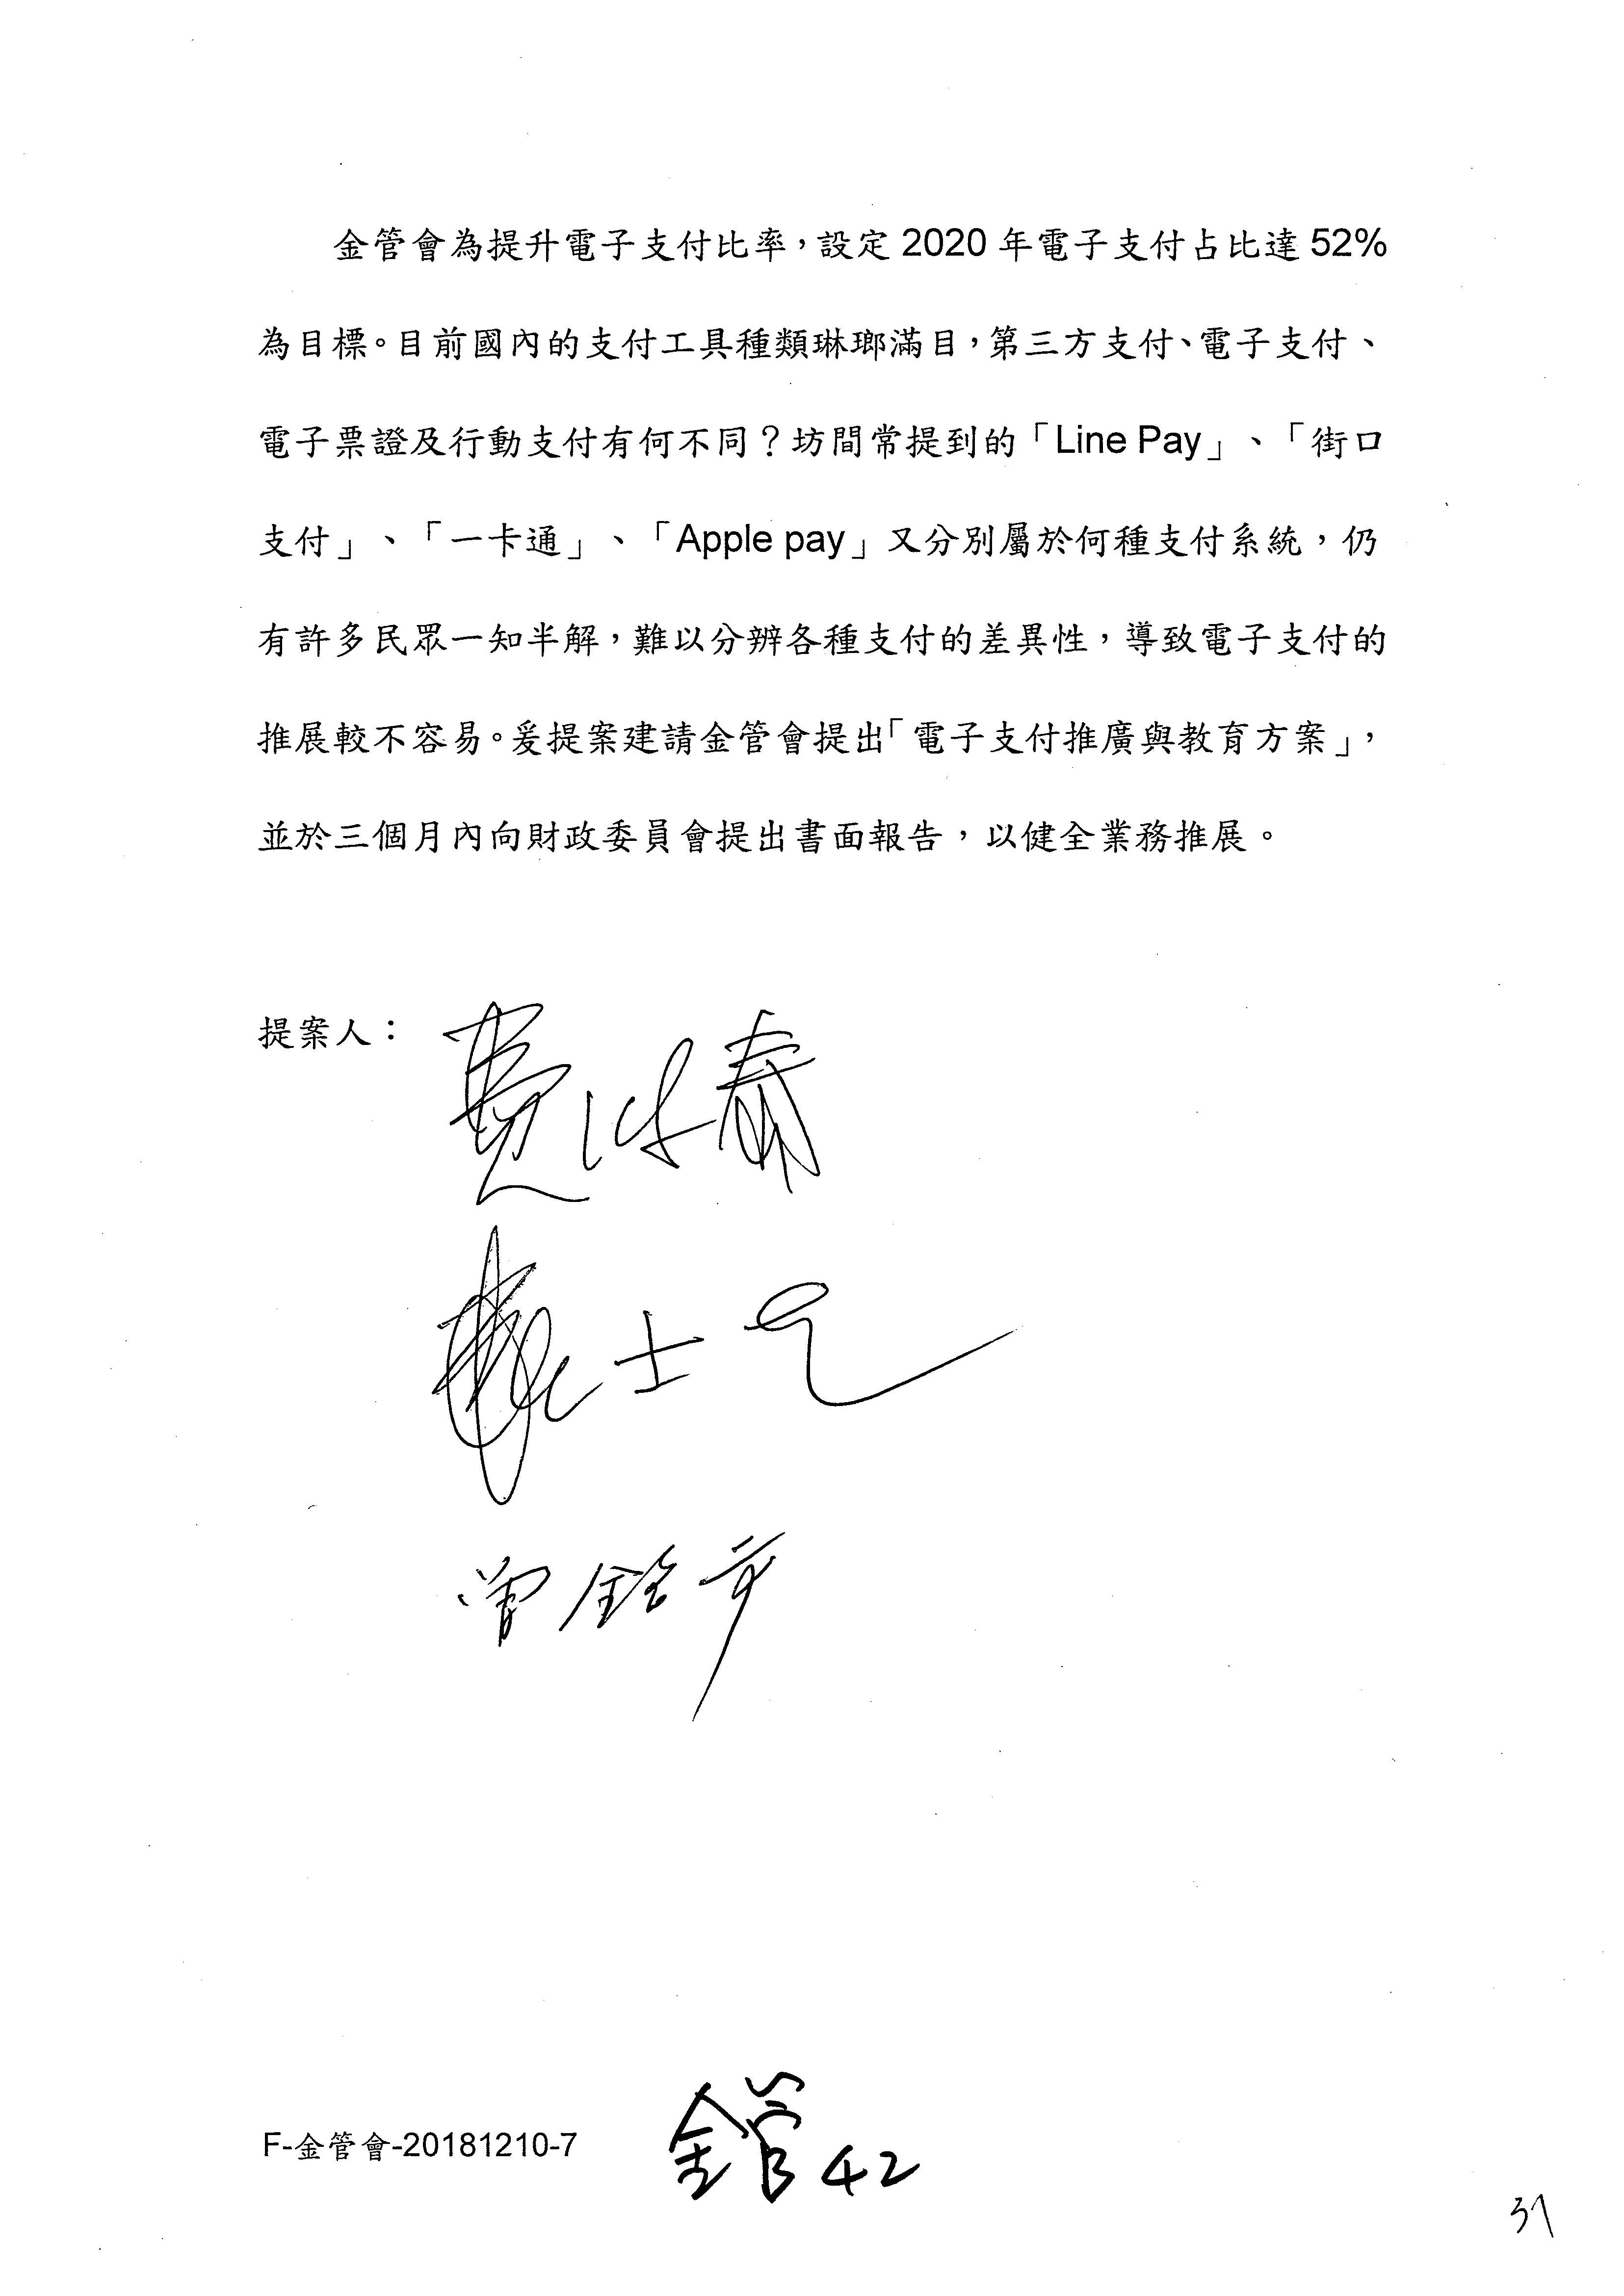 金管會為提升電子支付比率，設定 2020 年電子支付占比達 52%
為目標。目前國內的支付工具種類琳瑯滿目，第三方支付、電子支付、
電子票證及行動支付有何不同？坊間常提到的「Line Pay」、「街口
支付」、「一卡通」、「Apple pay」又分別屬於何種支付系統，仍
有許多民眾一知半解，難以分辨各種支付的差異性，導致電子支付的
推展較不容易。爰提案建請金管會提出「電子支付推廣與教育方案」，
並於三個月內向財政委員會提出書面報告，以健全業務推展。
提案人：
費鴻泰
曾銘宗
F-金管會-20181210-7
金管 42